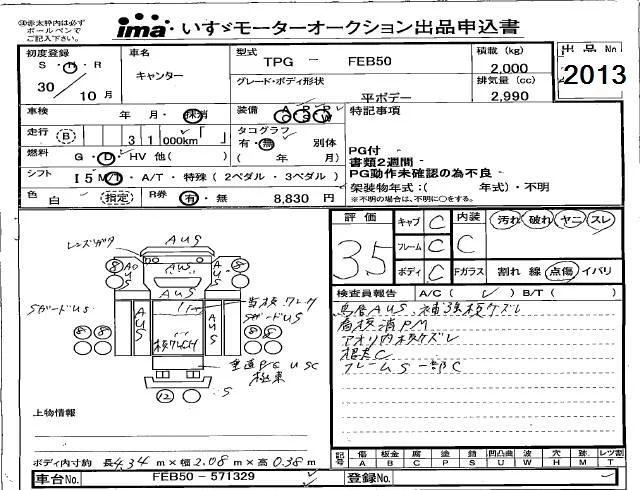 ※赤太枠内は必ず
ボールペンで
ご記入下さい。
ima いすゞモーターオークション出品申込書
初度登録
S・H・R
30 10月
車名
キャンター
型式
TPG － FEB50
グレード・ボディ形状
平ボデー
積載 (kg)
2,000
排気量 (cc)
2,990
出品 No
2013
車検 年・月・抹消
装備 A P P
C S W
走行 B 31 000km
タコグラフ
有・無 別体
( 年 月)
燃料 G・D・HV 他( )
シフト I5 M/T・A/T・特殊(2ペダル・3ペダル)
色 白 (指定) R券 有・無 8,830 円
特記事項
PG付
書類2週間
PG動作未確認の為不良
架装物年式:( 年式)・不明
※不明の場合は、不明に○をする。
評価
3.5
キャブ C 内装 汚れ 破れ ヤニ スレ
フレーム C C
ボディ C Fガラス 割れ 線 点傷 イバリ
検査員報告 A/C( ✓ ) B/T( )
鳥居AUS、補強板ケズレ
高板済PM
アオリ内板ケズレ
根太C
フレームS一部C
レンズワレ
AUS
8 8
AUS
AUS
AUS AUS
SガードUS
SガードUS
8 8 8 8
垂直PG USC
12 S
上物情報
ボディ内寸約 長 4.34 m×幅 2.08 m×高 0.38 m
記号 傷 板金 腐 塗 錆 凹凸曲 波 穴 跡 レツ割
A B C P S U W H M T
車台No. FEB50 - 571329
登録No.